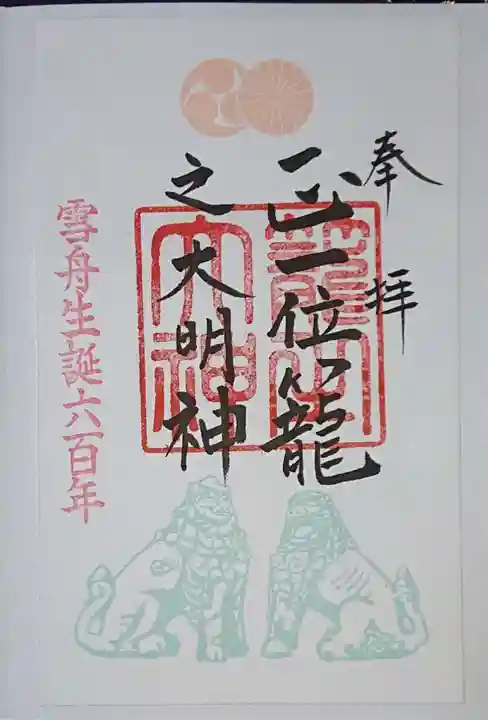 奉拝
正一位籠
之大明神
雪舟生誕六百年
籠之
大神